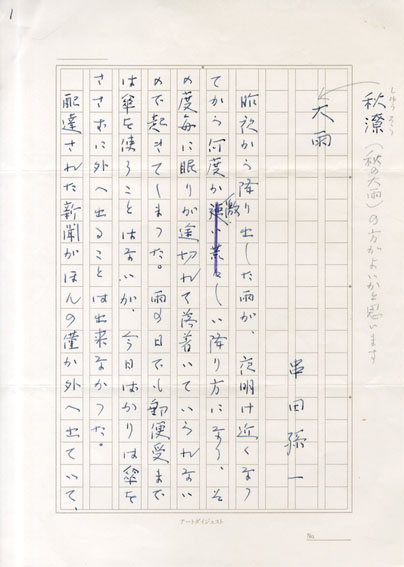 1
しゅうりょう
秋潦(秋の大雨)の方がよいかと思います
大雨
串田孫一
昨夜から降り出した雨が、夜明け近くなつ
てから何度か激しい降り方になり、そ
の度毎に眠りが途切れて落着いてゐられない
ので起きてしまつた。雨の日でも郵便受まで
は傘を使ふことはないが、今日ばかりは傘を
ささずに外へ出ることは出来なかつた。
配達された新聞がほんの僅か外へ出ていて、
アートダイジェスト
No